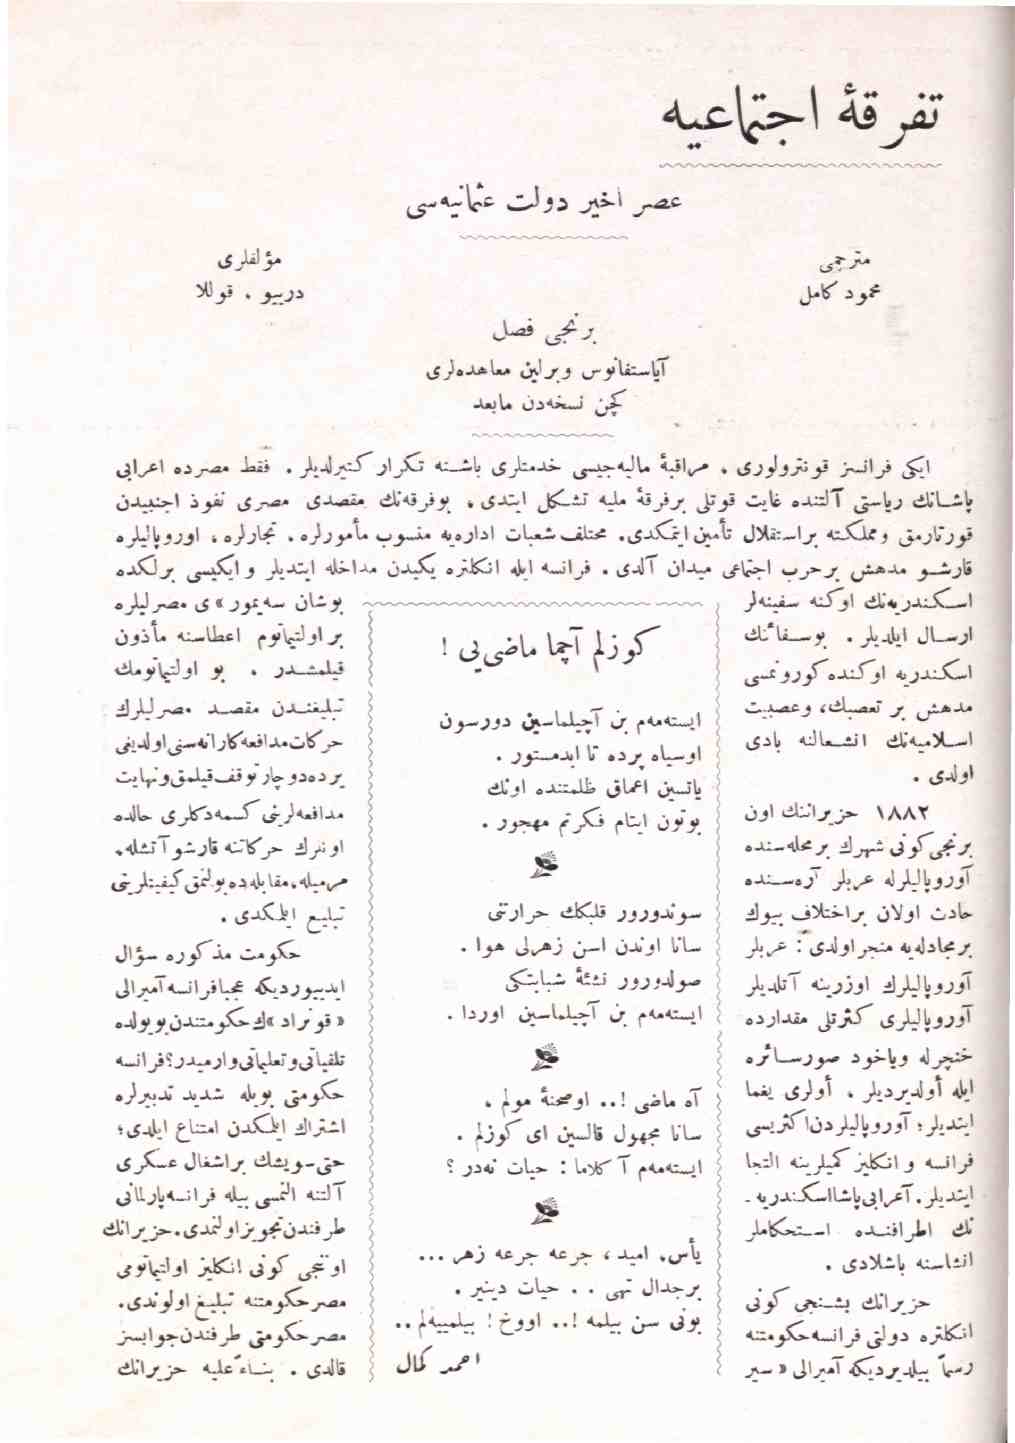 تفرقهٔ اجتماعیه
عصر اخیر دولت عثمانیه‌سی
مترجمی
محمود کامل
مؤلفلری
دریبو . قوللا
برنجی فصل
آیاستفانوس وبرلین معاهده‌لری
کچن نسخه‌دن مابعد
ایکی فرانسز قونترولوری ، مراقبهٔ مالیه‌جیسی خدمتلری باشنه تکرار کتیرلدیلر . فقط مصرده اعرابی
پاشانك ریاستی آلتنده غایت قوتلی برفرقهٔ ملیه تشکل ایتدی، بوفرقه‌نك مقصدی مصری نفوذ اجنبیدن
قورتارمق ومملکته براستقلال تأمین ایتمکدی. مختلف شعبات اداره‌یه منسوب مأمورلره، تجارلره، اوروپالیلره
قارشو مدهش برحرب اجتماعی میدان آلدی . فرانسه ایله انکلتره یکیدن مداخله ایتدیلر وایکیسی برلکده
اسکندریه‌نك اوکنه سفینه‌لر
ارسال ایلدیلر . بوسفائنك
اسکندریه اوکنده کورونمسی
مدهش بر تعصبك، وعصبیت
اسلامیه‌نك انشعالنه بادی
اولدی .
۱۸۸۲ حزیراننك اون
برنجی کونی شهرك بر محله‌سنده
آوروپالیلرله عربلر آره‌سنده
حادث اولان براختلاف بیوك
برمجادله‌یه منجر اولدی : عربلر
آوروپالیلرك اوزرینه آتلدیلر
آوروپالیلری کثرتلی مقدارده
خنچرله ویاخود صورسائره
ایله أولدیردیلر ، أولری یغما
ایتدیلر؛ آوروپالیلردن اکثریسی
فرانسه وانکلیز کمیلرینه التجا
ایتدیلر. آعرابی پاشا اسکندریه ـ
نك اطرافنده استحکاملر
انشاسنه باشلادی .
حزیرانك بشنجی کونی
انکلتره دولتی فرانسه حکومتنه
رسماً بیلدیردیکه آمیرالی «سیر
کوزلم آچما ماضی‌یی !
ایسته‌مه‌م بن آچیلماسین دورسون
اوسیاه پرده تا ابدمستور .
یاتسین اعماق ظلمتنده اونك
بوتون ایتام فکرتم مهجور .
سوندورور قلبکك حرارتنی
سانا اوندن اسن زهرلی هوا .
صولدورور نشئهٔ شبابتکی
ایسته‌مه‌م بن آچیلماسین اوردا .
آه ماضی !.. اوصحنهٔ مولم ،
سانا مجهول قالسین ای کوزلم .
ایسته‌مه‌م آکلاما : حیات نه‌در ؟
یأس، امید، جرعه جرعه زهر ...
برجدال تهی . . حیات دینیر .
بونی سن بیلمه !.. اووخ ! بیلمییه‌لم ..
احمد کمال
بوشان سه‌یمور» ی مصرلیلره
بر اولتیماتوم اعطاسنه مأذون
قیلمشدر . بو اولتیماتومك
تبلیغندن مقصد مصرلیلرك
حرکات مدافعه‌کارانه‌سنی اولدیغی
یرده‌دوچارتوقف قیلمق ونهایت
مدافعه‌لرینی کسمه‌دکلری حالده
اونلرك حرکاتنه قارشو آتشله،
مرمیله، مقابله‌ده بولنمق کیفیتلرینی
تبلیغ ایلمکدی .
حکومت مذکوره سؤال
ایدییوردیکه عجبا فرانسه آمیرالی
«قونراد» ك حکومتندن بویولده
تلقیاتی وتعلیماتی وارمیدر؟ فرانسه
حکومتی بویله شدید تدبیرلره
اشتراك ایلمکدن امتناع ایلدی؛
حتی سویشك براشغال عسکری
آلتنه النمسی بیله فرانسه پارلمانی
طرفندن تجویز اولنمدی. حزیرانك
اونجی کونی انکلیز اولتیماتومی
مصر حکومتنه تبلیغ اولوندی.
مصر حکومتی طرفندن جوابسز
قالدی . بناءً علیه حزیرانك